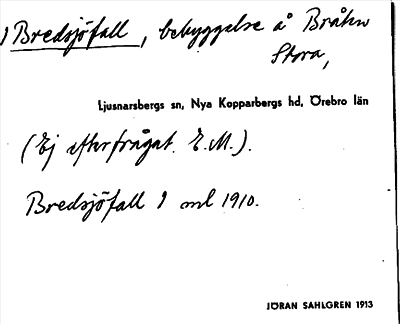 ) Bredsjöfall, bebyggelse å Bråten
Stora,
Ljusnarsbergs sn, Nya Kopparbergs hd, Örebro län
(Ej efterfrågat. E.M.).
Bredsjöfall 1 ml 1910.
JÖRAN SAHLGREN 1913